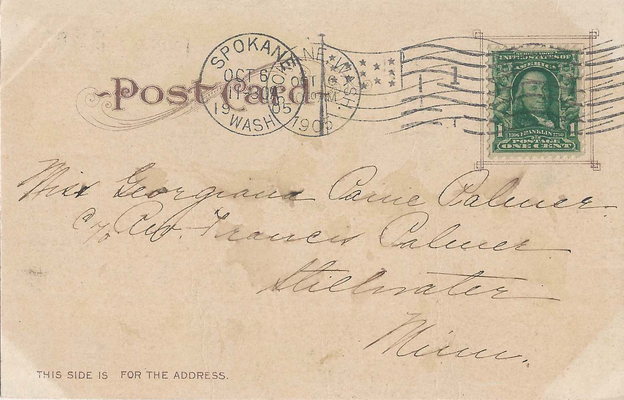 SPOKANE
OCT 6
1905
WASH.
Post Card
UNITED STATES OF AMERICA
1 FRANKLIN 1
POSTAGE
ONE CENT
Miss Georgiana Carrie Palmer.
c/o Rev. Francis Palmer
Stillwater
Minn.
THIS SIDE IS FOR THE ADDRESS.